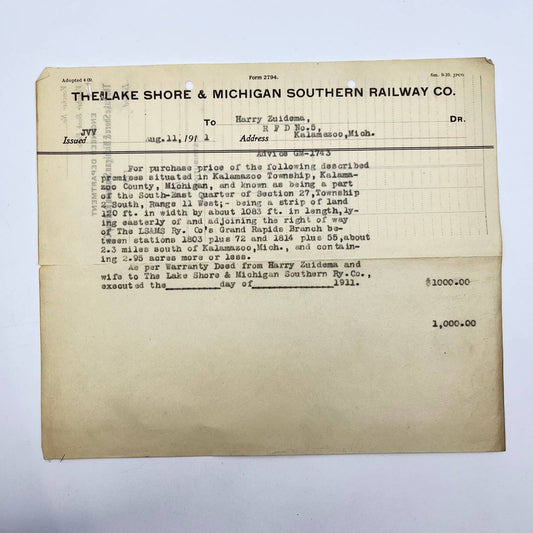 Adopted 4 09.
Form 2794.
THE LAKE SHORE & MICHIGAN SOUTHERN RAILWAY CO.
TO Harry Zuidema, DR.
JVV
R F D No.5,
Issued Aug.11, 1911 Address Kalamazoo, Mich.
Advice GM-1743
For purchase price of the following described
premises situated in Kalamazoo Township, Kalama-
zoo County, Michigan, and known as being a part
of the South-East Quarter of Section 27, Township
2 South, Range 11 West;- being a strip of land
120 ft. in width by about 1083 ft. in length, ly-
ing easterly of and adjoining the right of way
of The LS&MS Ry. Co's Grand Rapids Branch be-
tween stations 1803 plus 72 and 1814 plus 55, about
2.3 miles south of Kalamazoo, Mich., and contain-
ing 2.95 acres more or less.
As per Warranty Deed from Harry Zuidema and
wife to The Lake Shore & Michigan Southern Ry. Co.,
executed the day of 1911. $1000.00
1,000.00